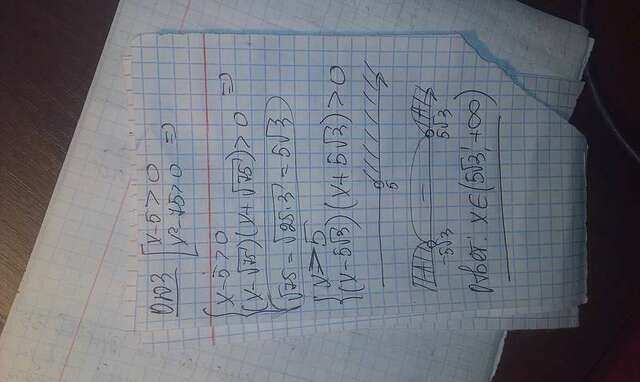 ОДЗ [x-5>0
[x²-75>0 ⇒
{x-5>0
{(x-√75)(x+√75)>0 ⇒
√75=√25·3=5√3
{x>5
{(x-5√3)(x+5√3)>0
5
-5√3 - 5√3
Ответ: x∈(5√3;+∞)